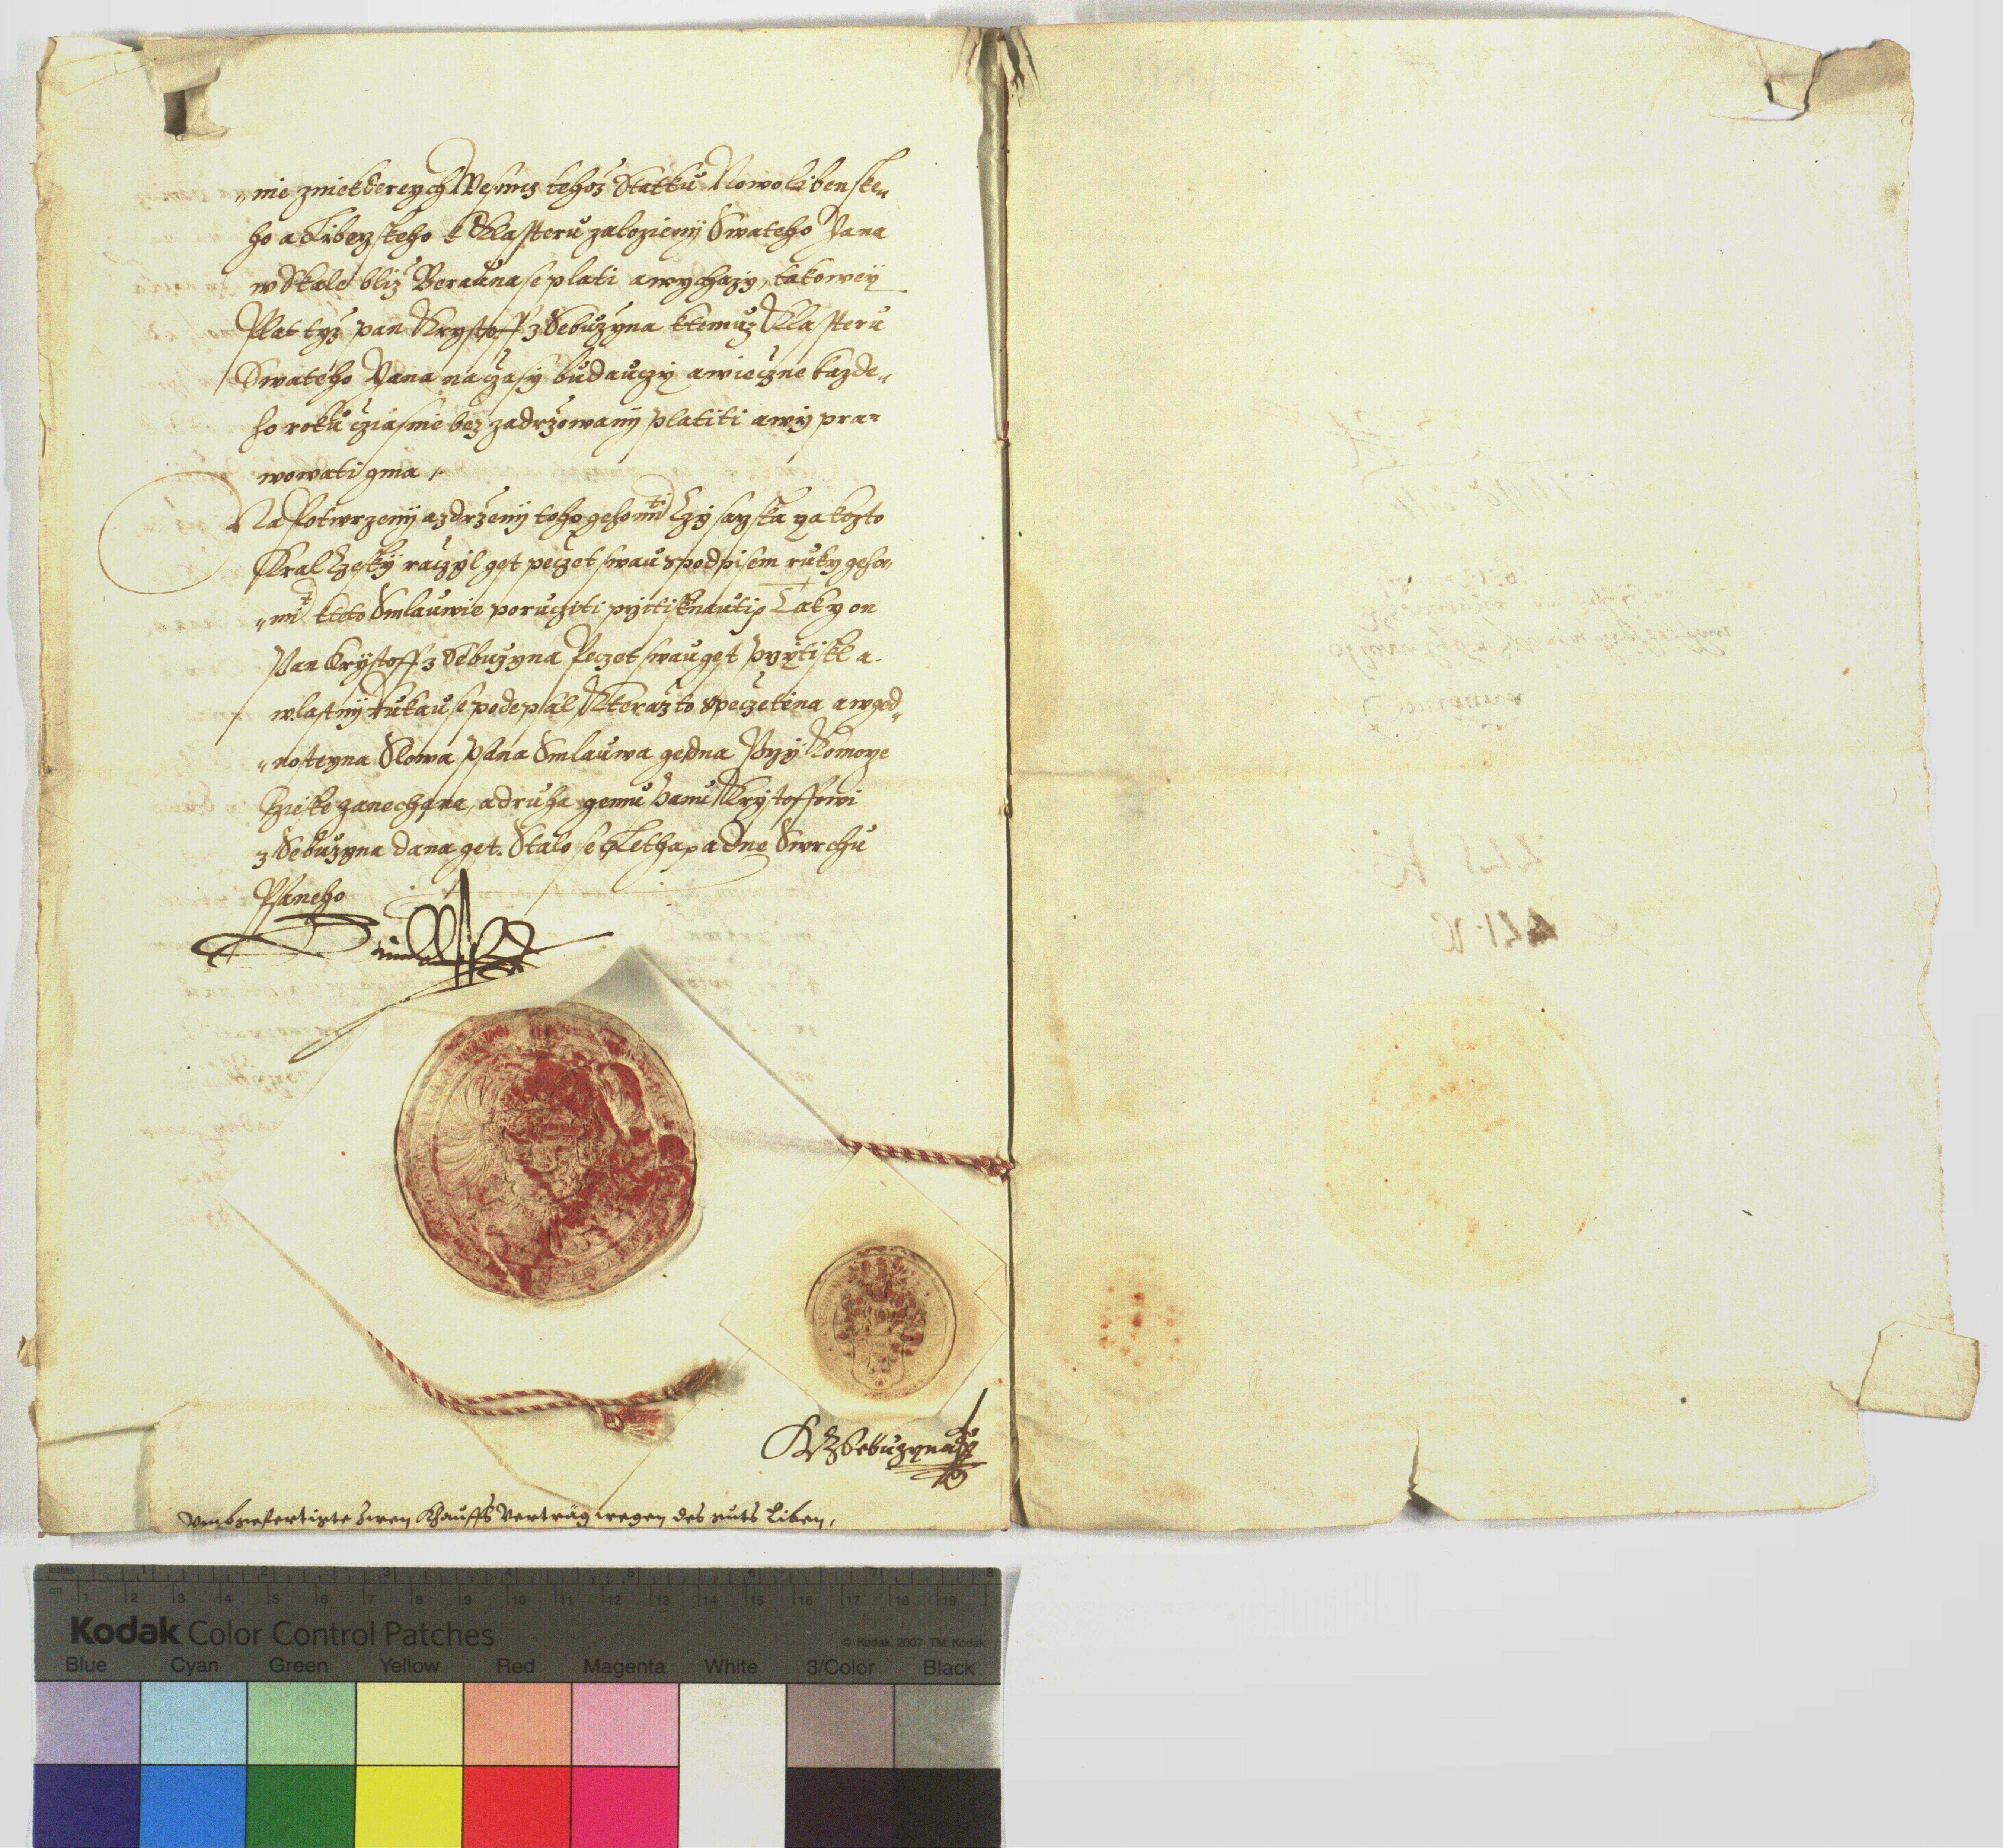 nie z niekterych Wesnis tehoz Statku Nowolibenske„
ho a Libeyskeho k Klasteru zalozieny Swateho Jana
w Skale bliz Berauna se plati a wychazy, takowey
Plat tyz pan Krystoff z Sebuzyna k temuz Klasteru
Swateho Jana na czasy budauczy a wieczne kazde„
ho roku cziasnie bez zadrzowany platiti a wy pra=
wowati gma
Na Potwrzeny a zdrzeny toho geho mti Czysarzska yakozto
Kral Czesky raczyl gest peczet swau s podpisem ruky geho
mti k teto Smlauwie porucziti przitisknauti Taky on
Pan Krystoff z Sebuzyna Peczet swau gest przytiskl a
wlastny rukau se podepsal Kterazto speczetena a w ged„
„nosteyna Slowa psana Smlauwa gedna Przy Komorze
Czieske zanechana, a druha gemu Panu Krystoffowi
z Sebuzyna dana gest. Stalo se Letha a dne Swrchu
Psaneho
Rudolff
K z Sebuzyna
Vnbgefertigte zwen Khauffs Verträg wegen des guts Liben,
inches 1 2 3 4 5 6 7 8
cm 1 2 3 4 5 6 7 8 9 10 11 12 13 14 15 16 17 18 19
Kodak Color Control Patches
© Kodak, 2007 TM: Kodak
Blue Cyan Green Yellow Red Magenta White 3/Color Black